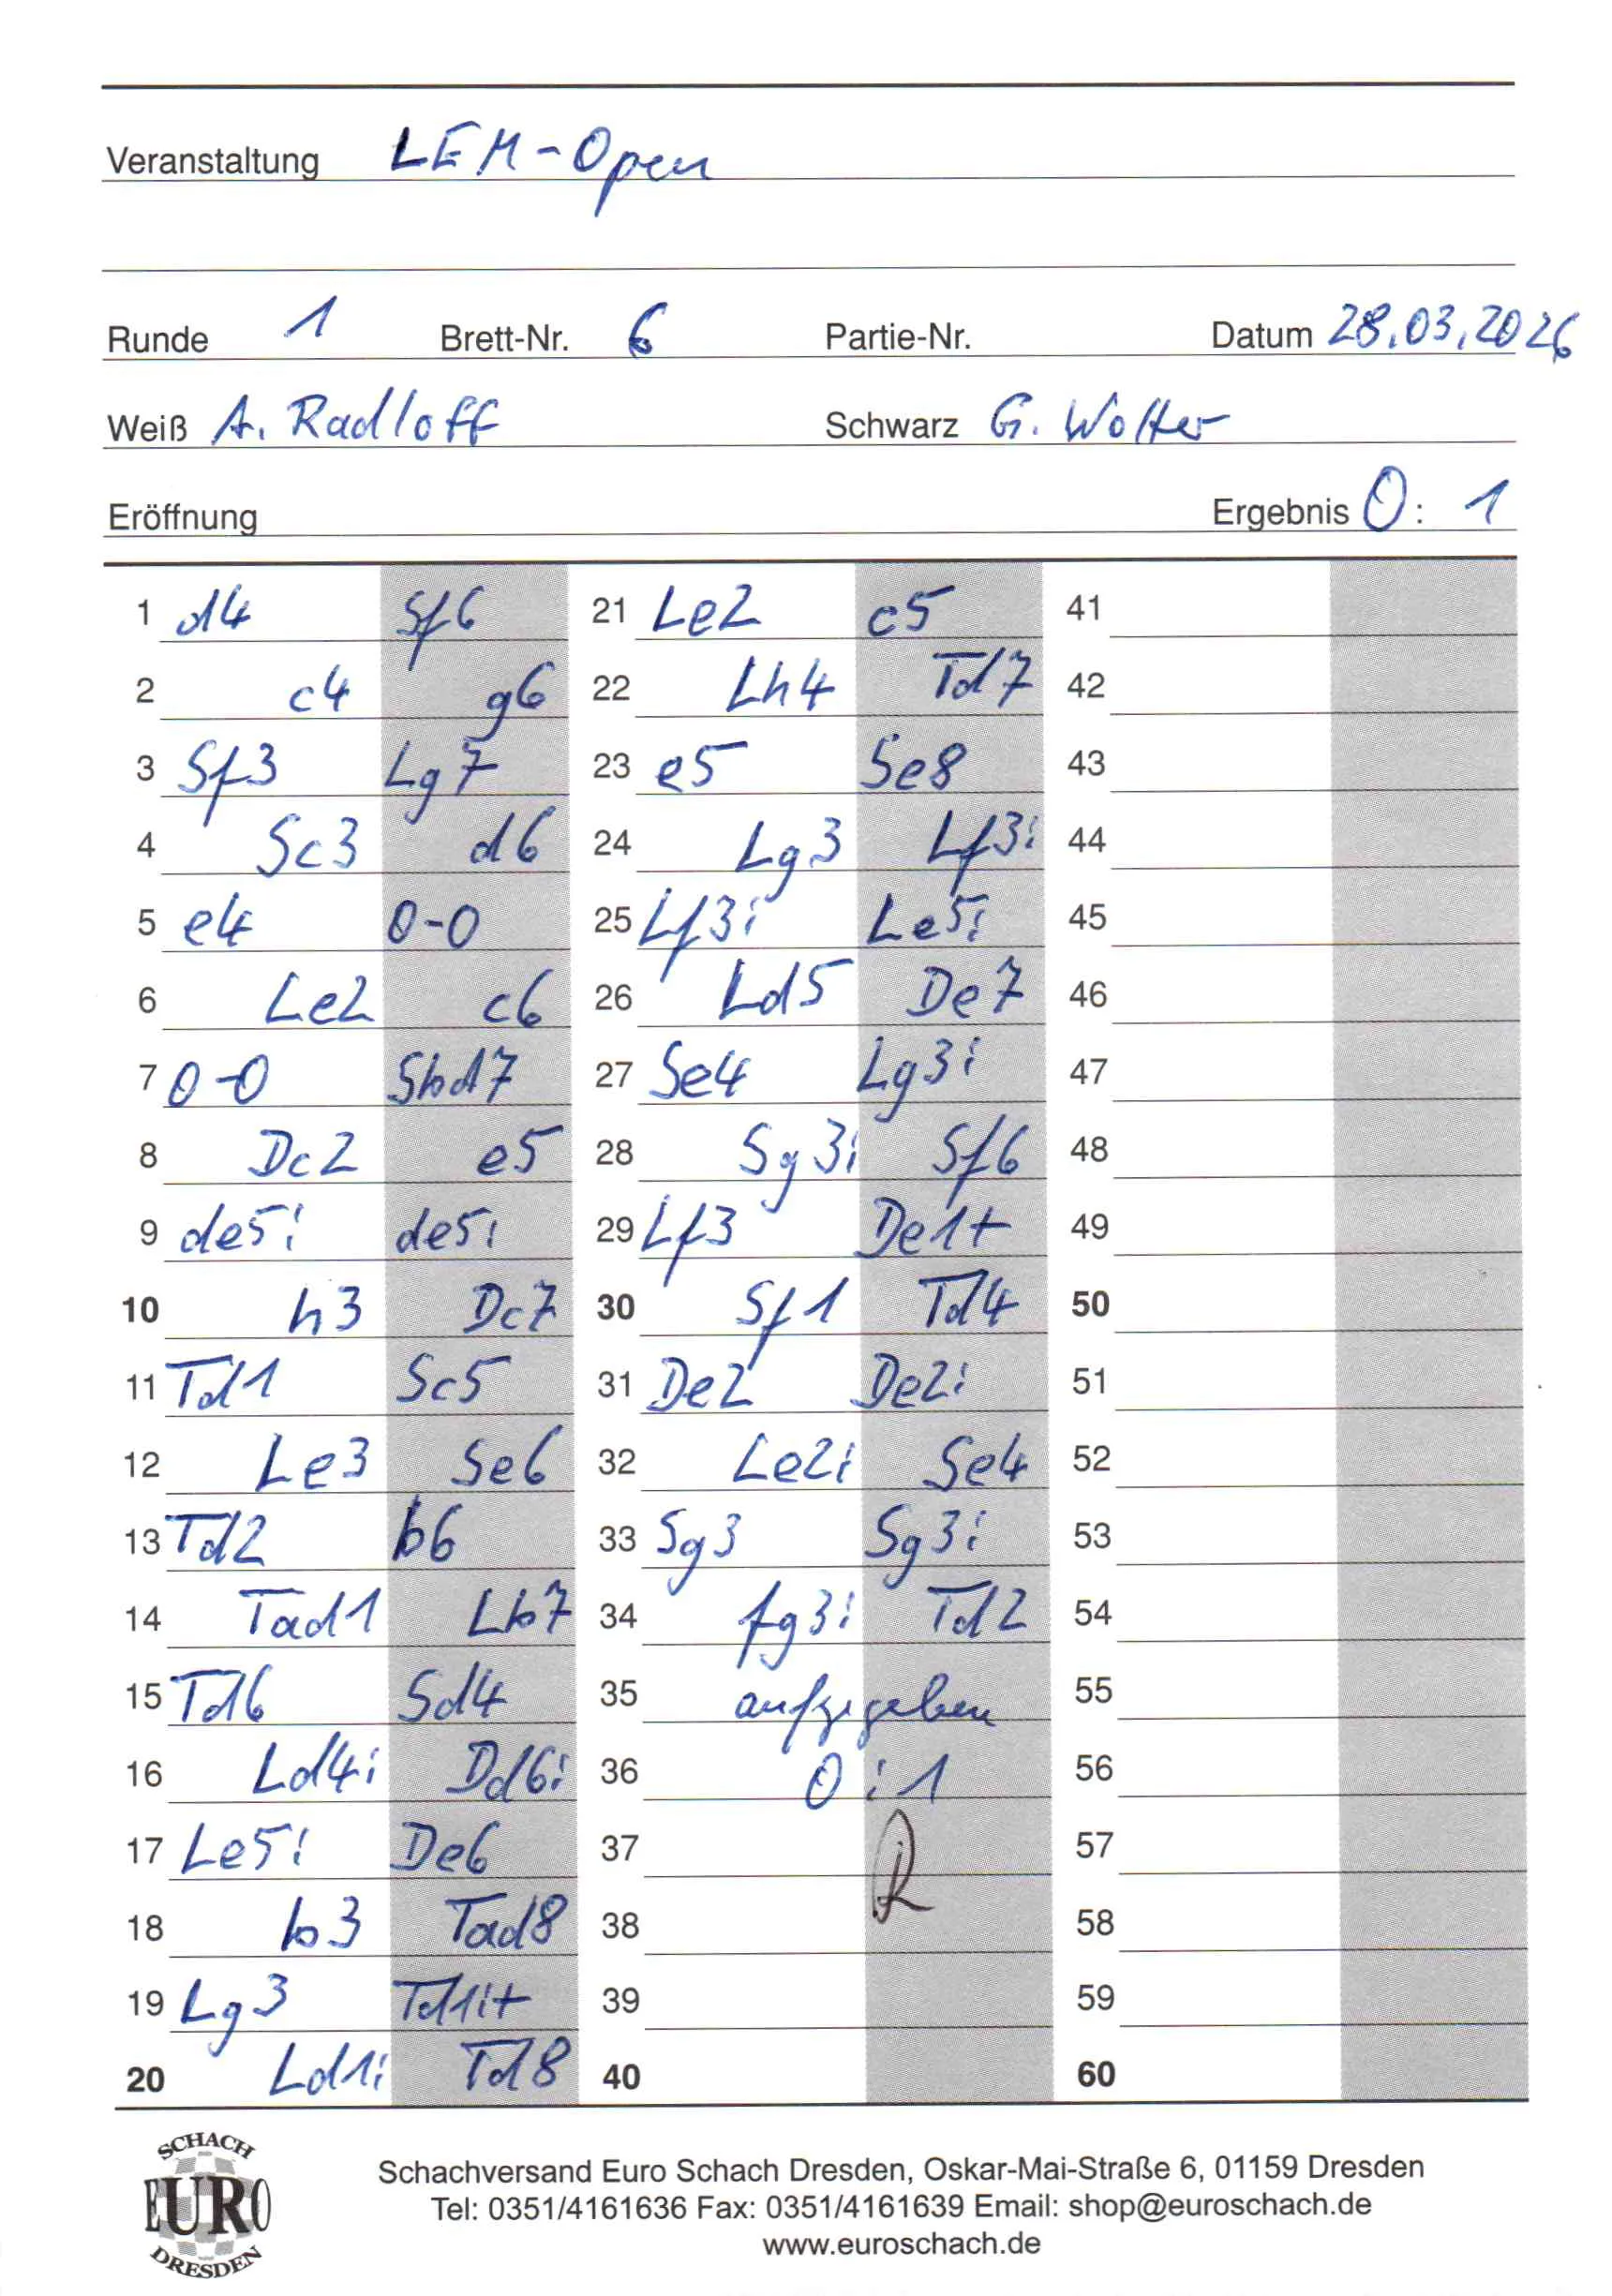 Veranstaltung LEM-Open
Runde 1 Brett-Nr. 6 Partie-Nr. Datum 28.03.2026
Weiß A. Radloff Schwarz G. Wolter
Eröffnung Ergebnis 0 : 1
1 d4 Sf6
2 c4 g6
3 Sf3 Lg7
4 Sc3 d6
5 e4 0-0
6 Le2 c6
7 0-0 Sbd7
8 Dc2 e5
9 de5: de5:
10 h3 Dc7
11 Td1 Sc5
12 Le3 Se6
13 Td2 b6
14 Tad1 Lb7
15 Td6 Sd4
16 Ld4: Dd6:
17 Le5: De6
18 b3 Tad8
19 Lg3 Td1:+
20 Ld1: Td8
21 Le2 c5
22 Lh4 Td7
23 e5 Se8
24 Lg3 Lf3:
25 Lf3: Le5:
26 Ld5 De7
27 Se4 Lg3:
28 Sg3: Sf6
29 Lf3 De1+
30 Sf1 Td4
31 De2 De2:
32 Le2: Se4
33 Sg3 Sg3:
34 fg3: Td2
35 aufgegeben
36 0:1
37
38
39
40
41
42
43
44
45
46
47
48
49
50
51
52
53
54
55
56
57
58
59
60
SCHACH
EURO
DRESDEN
Schachversand Euro Schach Dresden, Oskar-Mai-Straße 6, 01159 Dresden
Tel: 0351/4161636 Fax: 0351/4161639 Email: shop@euroschach.de
www.euroschach.de